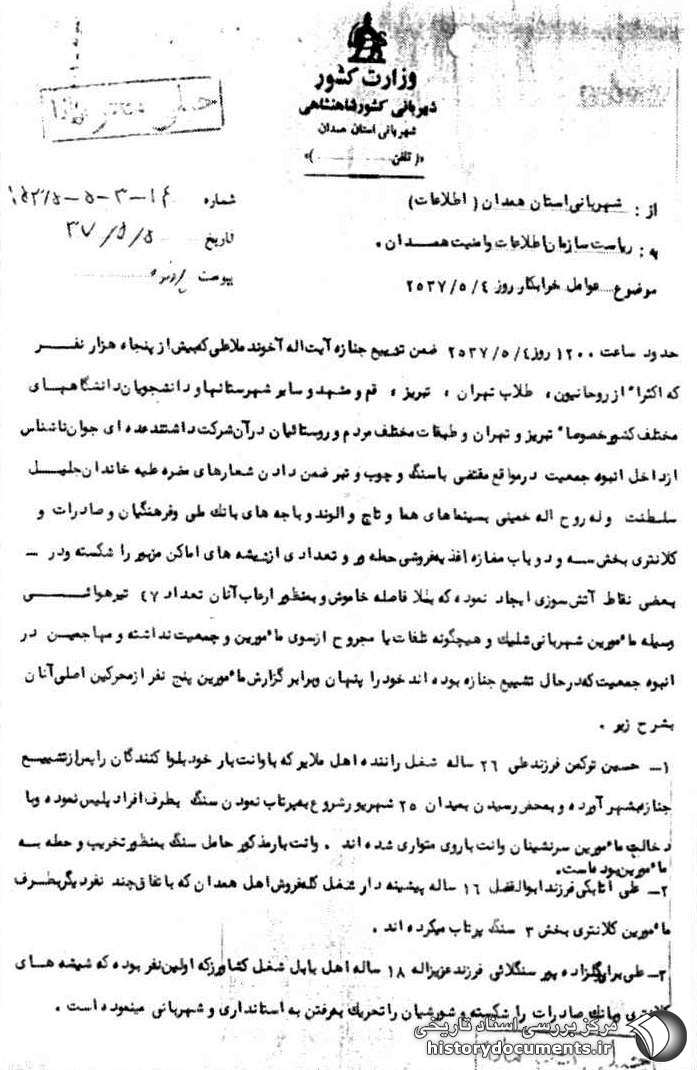 وزارت کشور
شهربانی کشور شاهنشاهی
شهربانی استان همدان
«( تلفن ........ )»
خیلی محرمانه
شماره
تاریخ ۳۷/۵/۵
پیوست
از : شهربانی استان همدان ( اطلاعات )
به : ریاست سازمان اطلاعات وامنیت همدان .
موضوع عوامل خرابکار روز ۲۵۳۷/۵/۴
حدود ساعت ۱۲۰۰ روز ۲۵۳۷/۵/۴ ضمن تشییع جنازه آیت اله آخوند ملاعلی که بیش از پنجاه هزار نفر
که اکثرا" از روحانیون ، طلاب تهران ، تبریز ، قم و مشهد و سایر شهرستانها و دانشجویان دانشگاههای
مختلف کشور خصوصا" تبریز و تهران و طبقات مختلف مردم و روستائیان در آن شرکت داشتند عده ای جوان ناشناس
از داخل انبوه جمعیت در مواقع مقتضی با سنگ و چوب و تبر ضمن دادن شعارهای مضره علیه خاندان جلیل
سلطنت وله روح اله خمینی بسینماهای هما و تاج و الوند و باجه های بانک ملی وفرهنگیان و صادرات و
کلانتری بخش سه و دو باب مغازه اغذیه فروشی حمله ور و تعدادی از شیشه های اماکن مزبور را شکسته ودر ــ
بعضی نقاط آتش سوزی ایجاد نموده که بلا فاصله خاموش و بمنظور ارعاب آنان تعداد ۴۷ تیر هوائی
وسیله مأمورین شهربانی شلیک و هیچگونه تلفات یا مجروح از سوی مأمورین و جمعیت نداشته و مهاجمین در
انبوه جمعیت که در حال تشییع جنازه بوده اند خود را پنهان وبرابر گزارش مأمورین پنج نفر از محرکین اصلی آنان
بشرح زیر .
۱ــ حسین ترکمن فرزند علی ۲۶ ساله شغل راننده اهل ملایر که با وانت بار خود بلوا کنندگان را پس از تشییع
جنازه بشهر آورده و بمحض رسیدن بمیدان ۲۵ شهریور شروع به پرتاب نمودن سنگ بطرف افراد پلیس نموده وبا
دخالت مأمورین سرنشینان وانت باروی متواری شده اند . وانت بار مذکور حامل سنگ بمنظور تخریب و حمله به
مأمورین بوده است.
۲ــ علی اتابکی فرزند ابوالفضل ۱۶ ساله پیشینه دار شغل گله فروش اهل همدان که با تفاق چند نفر دیگر بطرف
مأمورین کلانتری بخش ۳ سنگ پرتاب میکرده اند .
۳ــ علی برارگلزاده پور سنگلائی فرزند عزیزاله ۱۸ ساله اهل بابل شغل کشاورز که اولین نفر بوده که شیشه های
کلانتری وبانک صادرات را شکسته و شورشیان را تحریک به رفتن به استانداری و شهربانی مینموده است .
مرکز بررسی اسناد تاریخی
historydocuments.ir